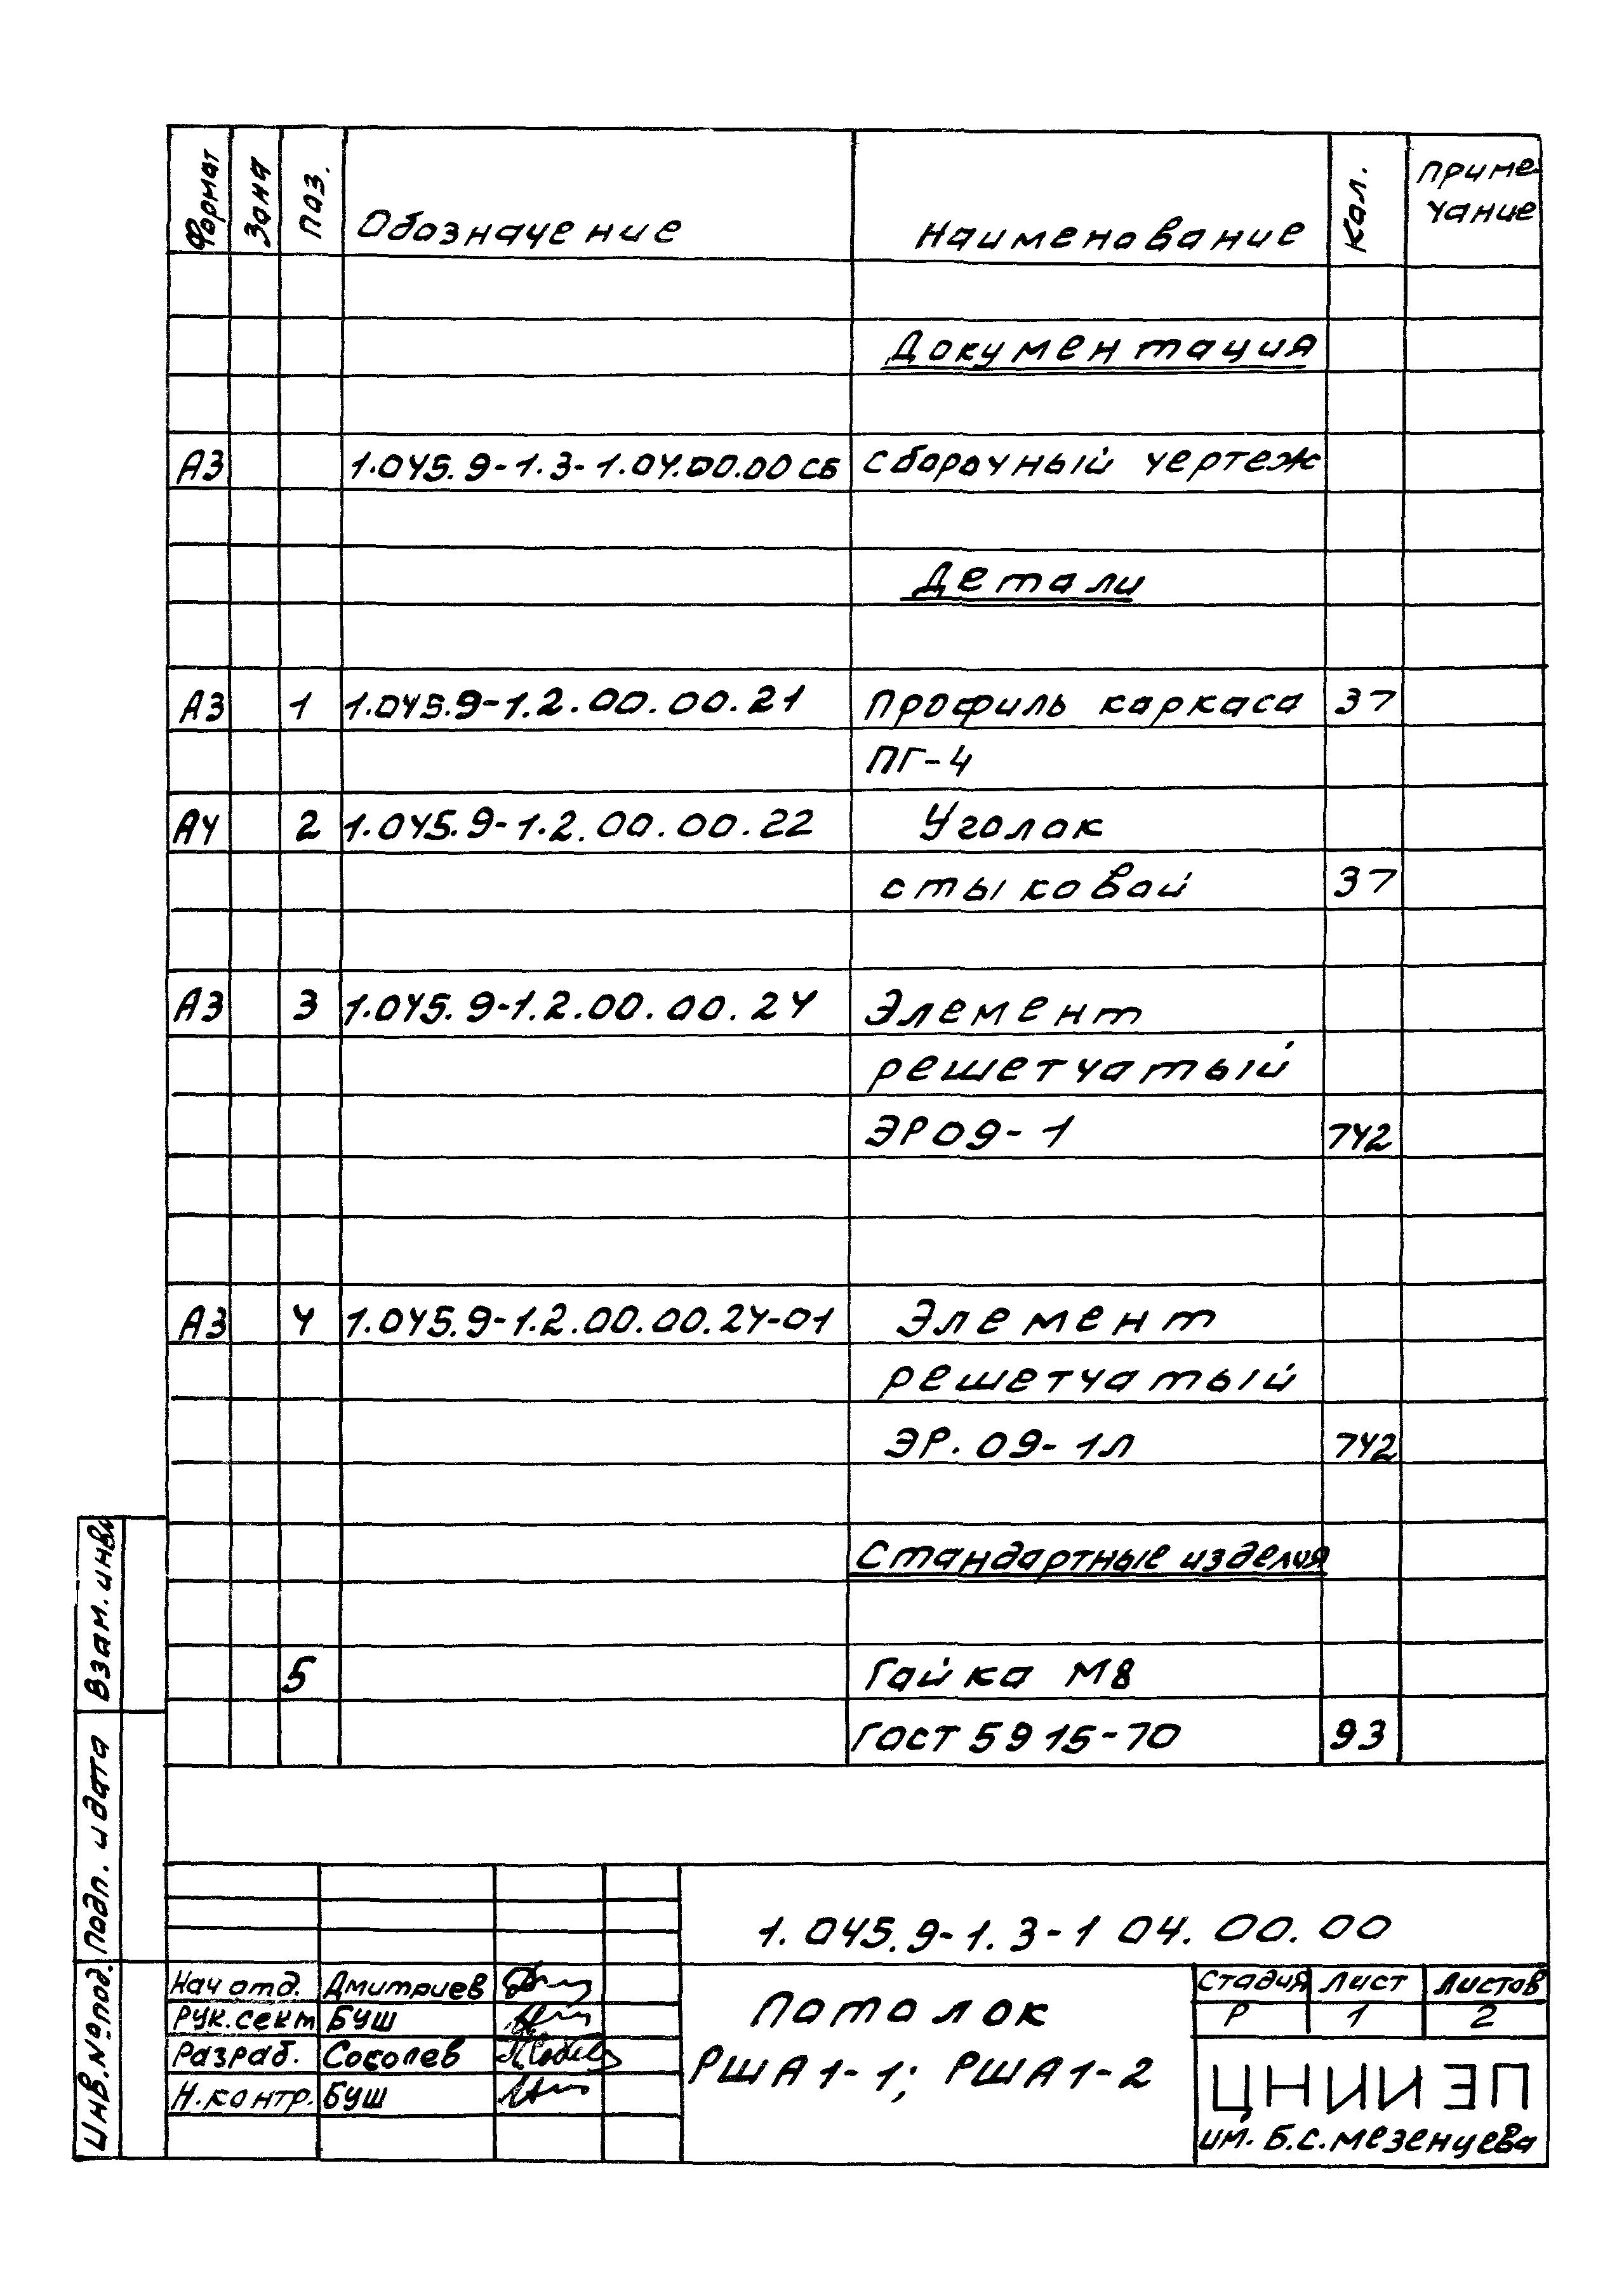 Формат Зона Поз. Обозначение Наименование Кол. Приме
чание
Документация
А3 1.045.9-1.3-1.04.00.00 СБ Сборочный чертеж
Детали
А3 1 1.045.9-1.2.00.00.21 Профиль каркаса 37
ПГ-4
А4 2 1.045.9-1.2.00.00.22 Уголок
стыковой 37
А3 3 1.045.9-1.2.00.00.24 Элемент
решетчатый
ЭР09-1 742
А3 4 1.045.9-1.2.00.00.24-01 Элемент
решетчатый
ЭР.09-1Л 742
Стандартные изделия
5 Гайка М8
ГОСТ 5915-70 93
Взам. инв
Подп. и дата
Инв.№под.
1.045.9-1.3-1 04.00.00
Нач отд. Дмитриев
Рук.сект Буш
Разраб. Соколев
Н.контр. Буш
Потолок
РША1-1; РША1-2
Стадия Лист Листов
Р 1 2
ЦНИИЭП
им. Б.С.Мезенцева